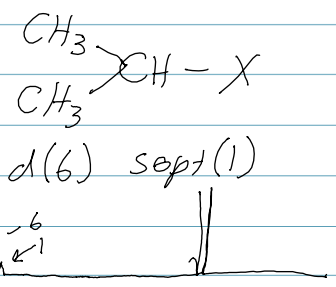 CH3
CH - X
CH3
d(6) sept(1)
6
1